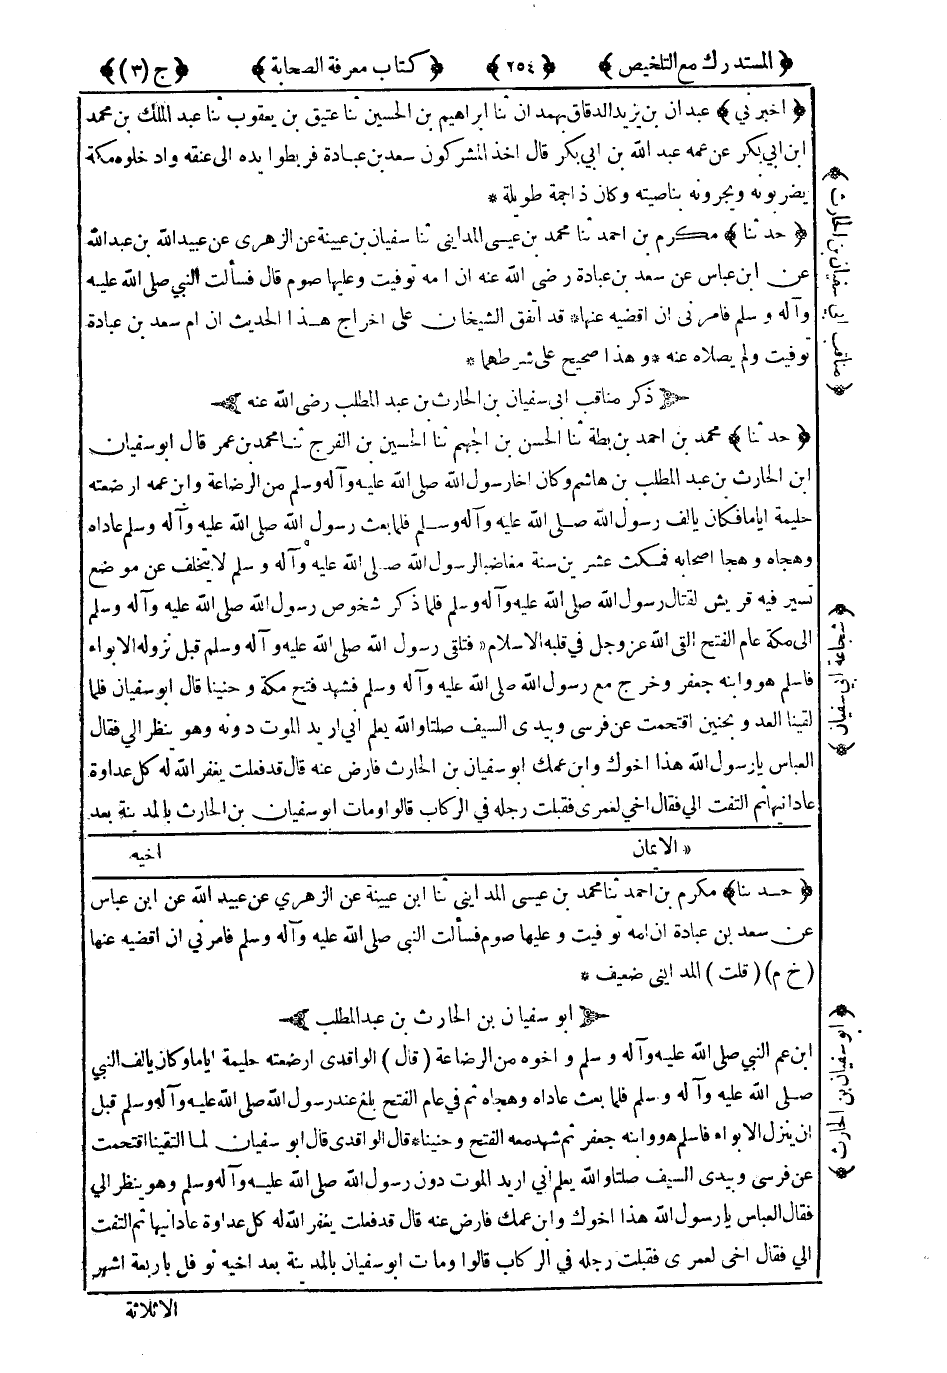 ﴿ المستدرك مع التلخيص ﴾ ﴿ ٢٥٤ ﴾ ﴿ كتاب معرفة الصحابة ﴾ ﴿ ج (٣) ﴾
﴿ اخبرني ﴾ عبدان بن يزيد الدقاق بهمدان ثنا ابراهيم بن الحسين ثنا عتيق بن يعقوب ثنا عبد الملك بن محمد
ابن ابي بكر عن عمه عبد الله بن ابي بكر قال اخذ المشركون سعد بن عبادة فربطوا يده الى عنقه وادخلوه مكة
يضربونه ويجرونه بناصيته وكان ذا جمة طويلة *
﴿ حدثنا ﴾ مكرم بن احمد ثنا محمد بن عيسى المدايني ثنا سفيان بن عيينة عن الزهرى عن عبيد الله بن عبد الله
عن ابن عباس عن سعد بن عبادة رضى الله عنه ان امه توفيت وعليها صوم قال فسألت النبي صلى الله عليه
وآله وسلم فامرنى ان اقضيه عنها* قد اتفق الشيخان على اخراج هذا الحديث ان ام سعد بن عبادة
توفيت ولم يصلاه عنه *وهذا صحيح على شرطهما *
ذكر مناقب ابى سفيان بن الحارث بن عبد المطلب رضى الله عنه
﴿ حدثنا ﴾ محمد بن احمد بن بطة ثنا الحسن بن الجهم ثنا الحسين بن الفرج ثنا محمد بن عمر قال ابو سفيان
ابن الحارث بن عبد المطلب بن هاشم وكان اخا رسول الله صلى الله عليه وآله وسلم من الرضاعة وابن عمه ارضعته
حليمة اياما فكان يالف رسول الله صلى الله عليه وآله وسلم فلما بعث رسول الله صلى الله عليه وآله وسلم عاداه
وهجاه وهجا اصحابه فمكث عشرين سنة مغاضبا لرسول الله صلى الله عليه وآله وسلم لا يتخلف عن موضع
تسير فيه قريش لقتال رسول الله صلى الله عليه وآله وسلم فلما ذكر شخوص رسول الله صلى الله عليه وآله وسلم
الى مكة عام الفتح القى الله عز وجل في قلبه الاسلام« فتلقى رسول الله صلى الله عليه وآله وسلم قبل نزوله الابواء
فاسلم هو وابنه جعفر وخرج مع رسول الله صلى الله عليه وآله وسلم فشهد فتح مكة وحنينا قال ابو سفيان فلما
لقينا العدو بحنين اقتحمت عن فرسى وبيدى السيف صلتا والله يعلم انى اريد الموت دونه وهو ينظر الي فقال
العباس يا رسول الله هذا اخوك وابن عمك ابو سفيان بن الحارث فارض عنه قال قد فعلت يغفر الله له كل عداوة
عادانيها ثم التفت الي فقال اخي لعمرى فقبلت رجله في الركاب قالوا ومات ابو سفيان بن الحارث بالمدينة بعد
« الايمان اخيه
﴿ حدثنا ﴾ مكرم بن احمد ثنا محمد بن عيسى المدايني ثنا ابن عيينة عن الزهري عن عبيد الله عن ابن عباس
عن سعد بن عبادة ان امه توفيت وعليها صوم فسألت النبي صلى الله عليه وآله وسلم فامرني ان اقضيه عنها
(خ م) (قلت) المدايني ضعيف *
ابو سفيان بن الحارث بن عبد المطلب
ابن عم النبي صلى الله عليه وآله وسلم واخوه من الرضاعة (قال) الواقدى ارضعته حليمة اياما وكان يالف النبي
صلى الله عليه وآله وسلم فلما بعث عاداه وهجاه ثم في عام الفتح بلغ عند رسول الله صلى الله عليه وآله وسلم قبل
ان ينزل الابواء فاسلم هو وابنه جعفر ثم شهد معه الفتح وحنينا*قال الواقدى قال ابو سفيان لما التقينا اقتحمت
عن فرسى وبيدى السيف صلتا والله يعلم اني اريد الموت دون رسول الله صلى الله عليه وآله وسلم وهو ينظر الي
فقال العباس يا رسول الله هذا اخوك وابن عمك فارض عنه قال قد فعلت يغفر الله له كل عداوة عادانيها ثم التفت
الي فقال اخى لعمرى فقبلت رجله في الركاب قالوا ومات ابو سفيان بالمدينة بعد اخيه نوفل باربعة اشهر
الا ثلاثة
﴿ مناقب ابي سفيان بن الحارث ﴾
﴿ شجاعة ابي سفيان ﴾
﴿ ابو سفيان بن الحارث ﴾